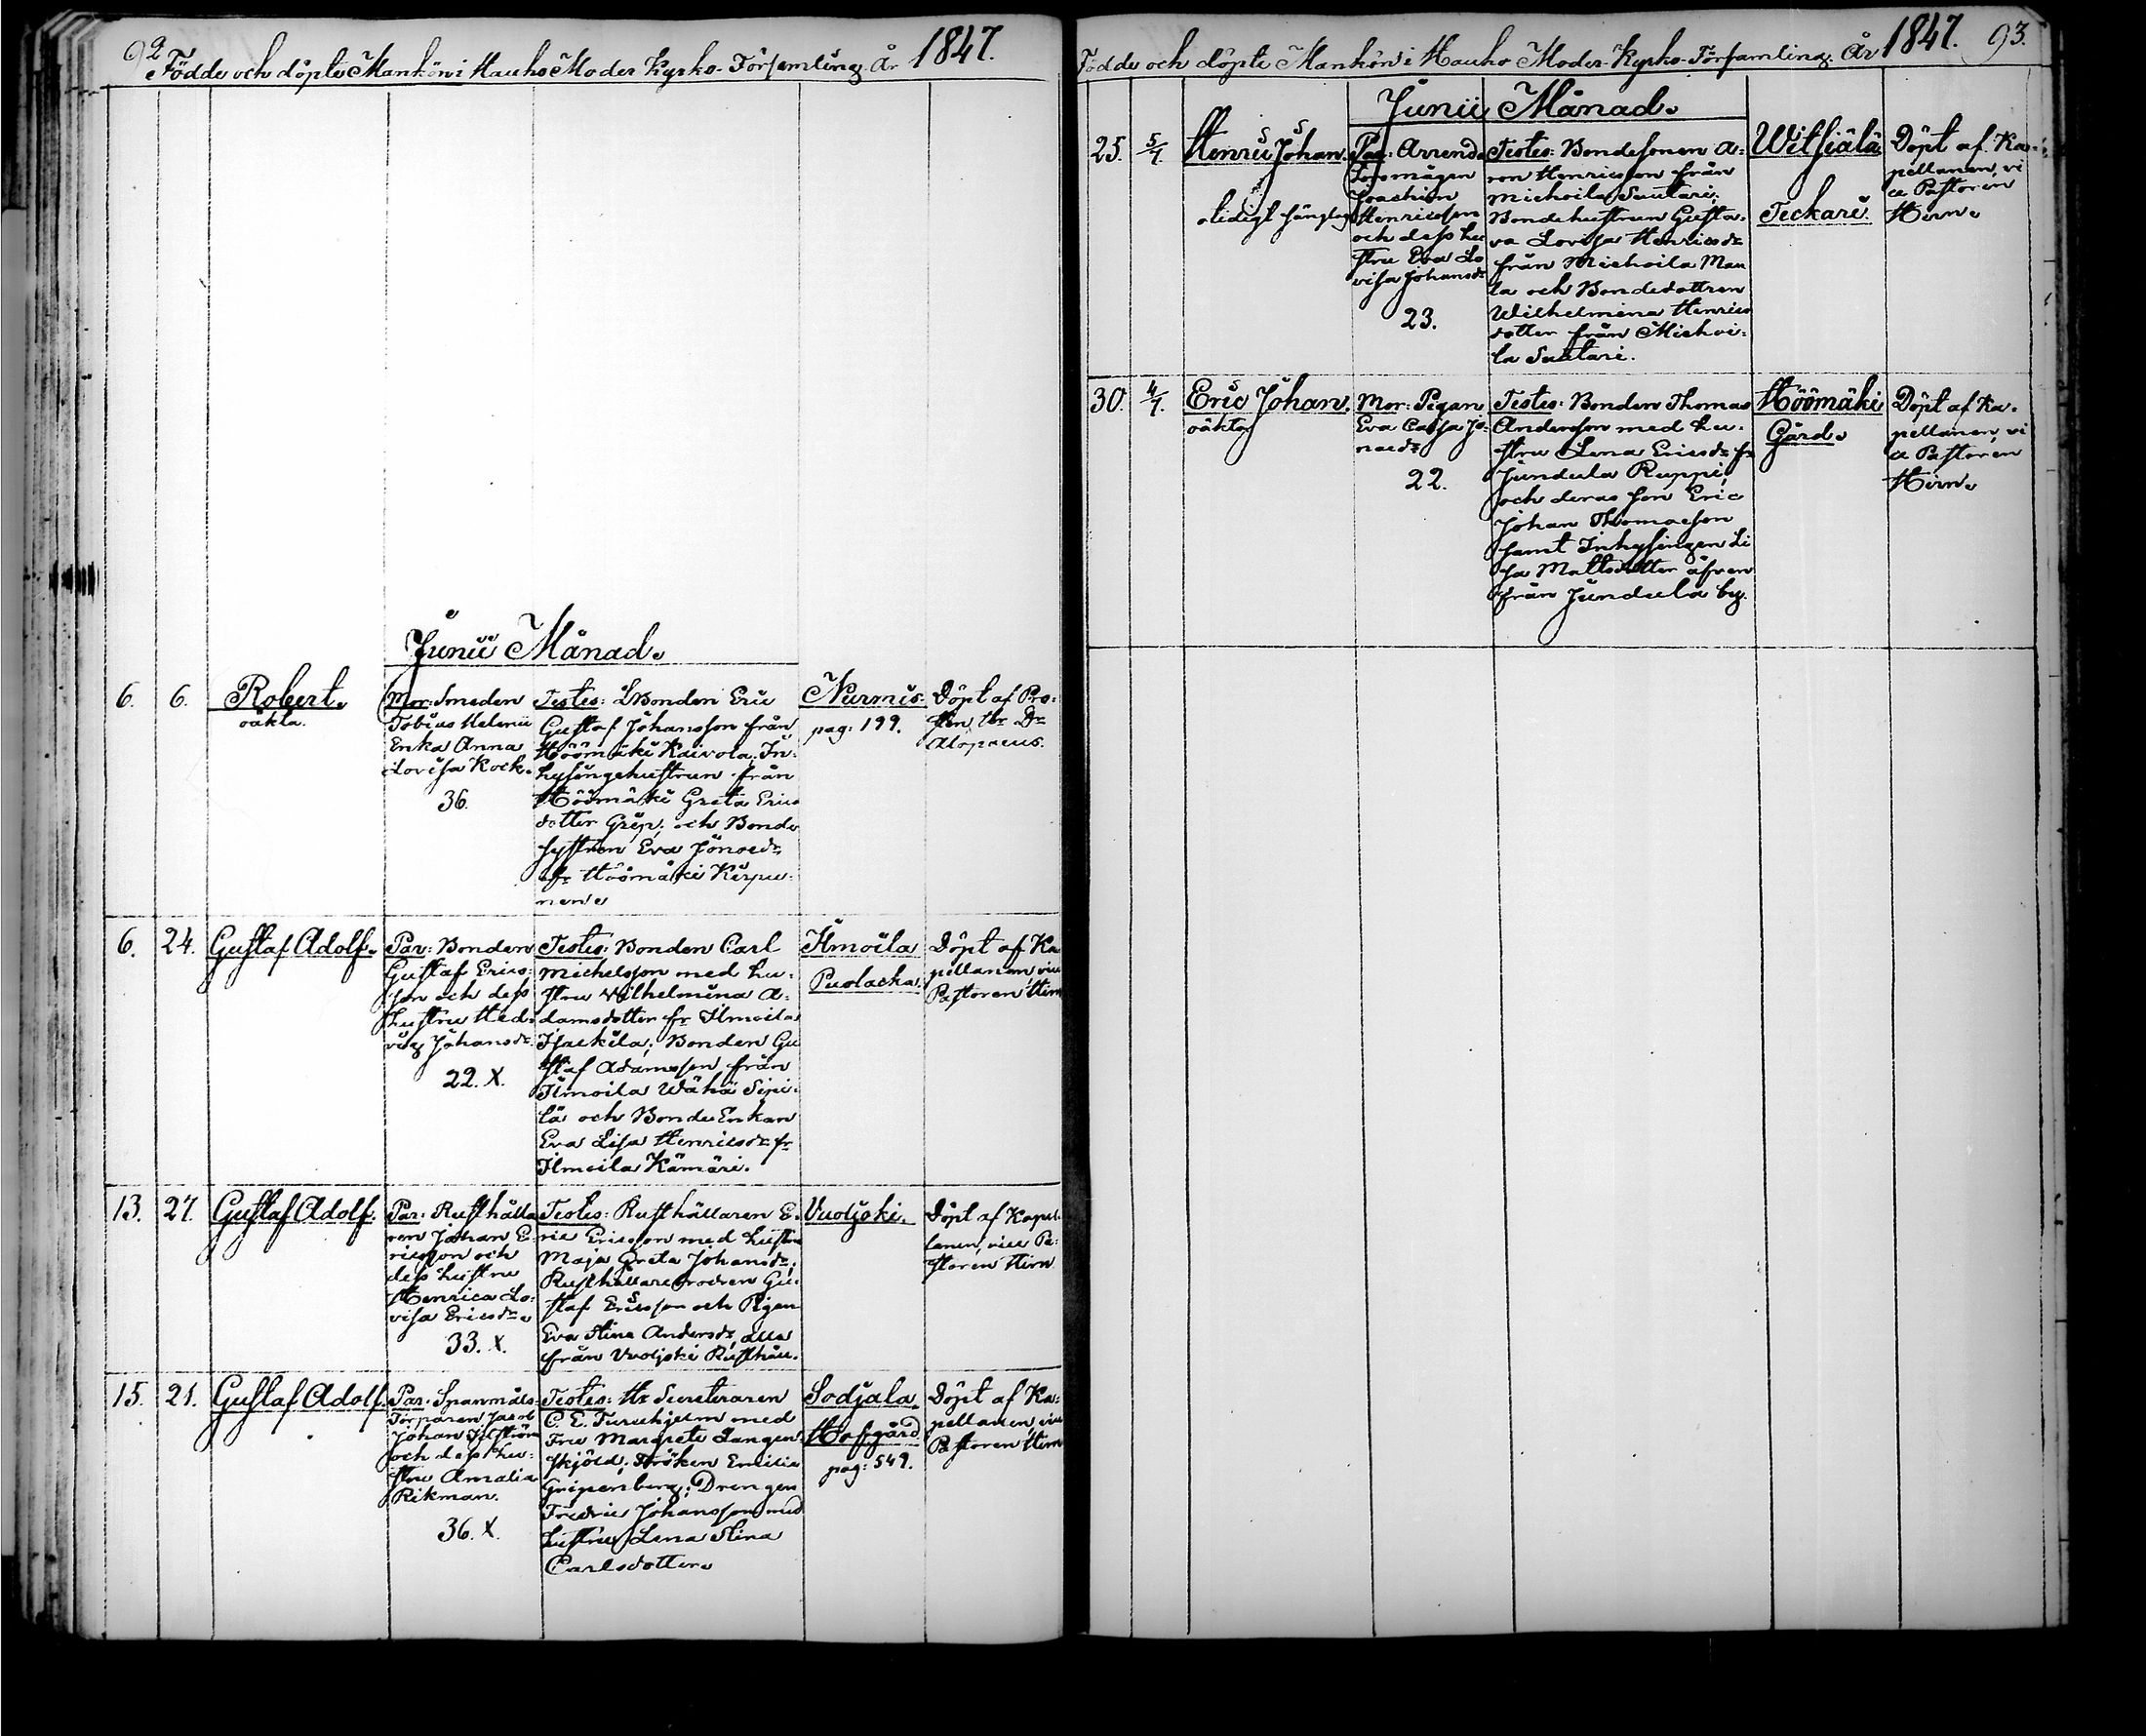 92
Födde och döpte Mankön i Hauho Moder Kyrko-Församling. År 1847.
Junii Månad.
6.
6.
Robert.
oäkta.
Mor: Smeden
Tobias Helenii
Enka Anna
Lovisa Kock.
36.
Testes: Bonden Eric
Gustaf Johansson från
Höömäki Kaivola, In-
hysingehustrun från
Höömäki Greta Erics
dotter Grep; och Bonde
hystrun Eva Jönasdr
fr Höömäki Kirpu-
nen.
Nurmis.
pag: 199.
Döpt af Pro-
sten Hr Dr
Alopaeus.
6.
24.
Gustaf Adolf.
Par: Bonden
Gustaf Erics-
son och dess
hustru Hed-
vig Johansdr.
22. X.
Testes: Bonden Carl
Michelsson med hu-
stru Wilhelmina A-
damsdotter fr Ilmoila
Isackila; Bonden Gu
staf Adamsson från
Ilmoila Wähä Sipi-
lä och Bonde Enkan
Eva Lisa Henricsdr fr
Ilmoila Kämäri.
Ilmoila
Puolacka.
Döpt af Ka
pellanen, vice
Pastoren Hirn
13.
27.
Gustaf Adolf.
Par: Rusthålla
ren Johan E-
ricsson och
dess hustru
Henrica Lo-
visa Ericsdr.
33. X.
Testes: Rusthållaren E-
ric Ericsson med hustru
Maja Greta Johansdr;
Rusthållarebrodren Gu-
staf Ericsson och Pigan
Eva Stina Andersdr, alla
från Vuoljoki Rusthåll.
Vuoljoki.
Döpt af Kapel-
lanen, vice Pa-
storen Hirn
15.
21.
Gustaf Adolf.
Par: Spanmåls-
Torparen Jacob
Johan
och dess hu-
stru Amalia
Rikman.
36. X.
Testes: Hr Secreteraren
C. E. Furuhjelm med
Fru Margreta Langen-
skjöld; Fröken Emilia
Gripenberg; Drengen
Fredric Johansson med
hustru Lena Stina
Carlsdotter.
Sodjala
Hofgård
pag: 549.
Döpt af Ka-
pellanen, vice
Pastoren Hirn
Födde och döpte Mankön i Hauho Moder-Kyrko-Församling. År 1847. 93.
Junii Månad.
25.
5/7.
Henric Johan.
Par: Arrend.
Joachim
Henricsson
och dess hu
stru Eva Lo
visa Johansdr
23.
Testes: Bondesonen A-
ron Henricsson från
Michoila Suutari;
Bondehustrun Gusta-
va Lovisa Henricsdr
från Michoila Mau
la och Bondedottren
Wilhelmina Henrics
dotter från Michoi-
la Suutari.
Witsiälä
Teckari.
Döpt af Ka-
pellanen, vi
ce Pastoren
Hirn.
30.
4/7.
Eric Johan.
oäkta
Mor: Pigan
Eva Cajsa Jo-
nasdr
22.
Testes: Bonden Thomas
Andersson med hu-
stru Lena Ericsdr fr
Jundula Ruppi,
och deras son Eric
Johan Thomasson
samt Inhysingen Li
sa Mattsdotter äfven
från Jundula by.
Höömäki
Gård.
Döpt af Ka-
pellanen, vi
ce Pastoren
Hirn.